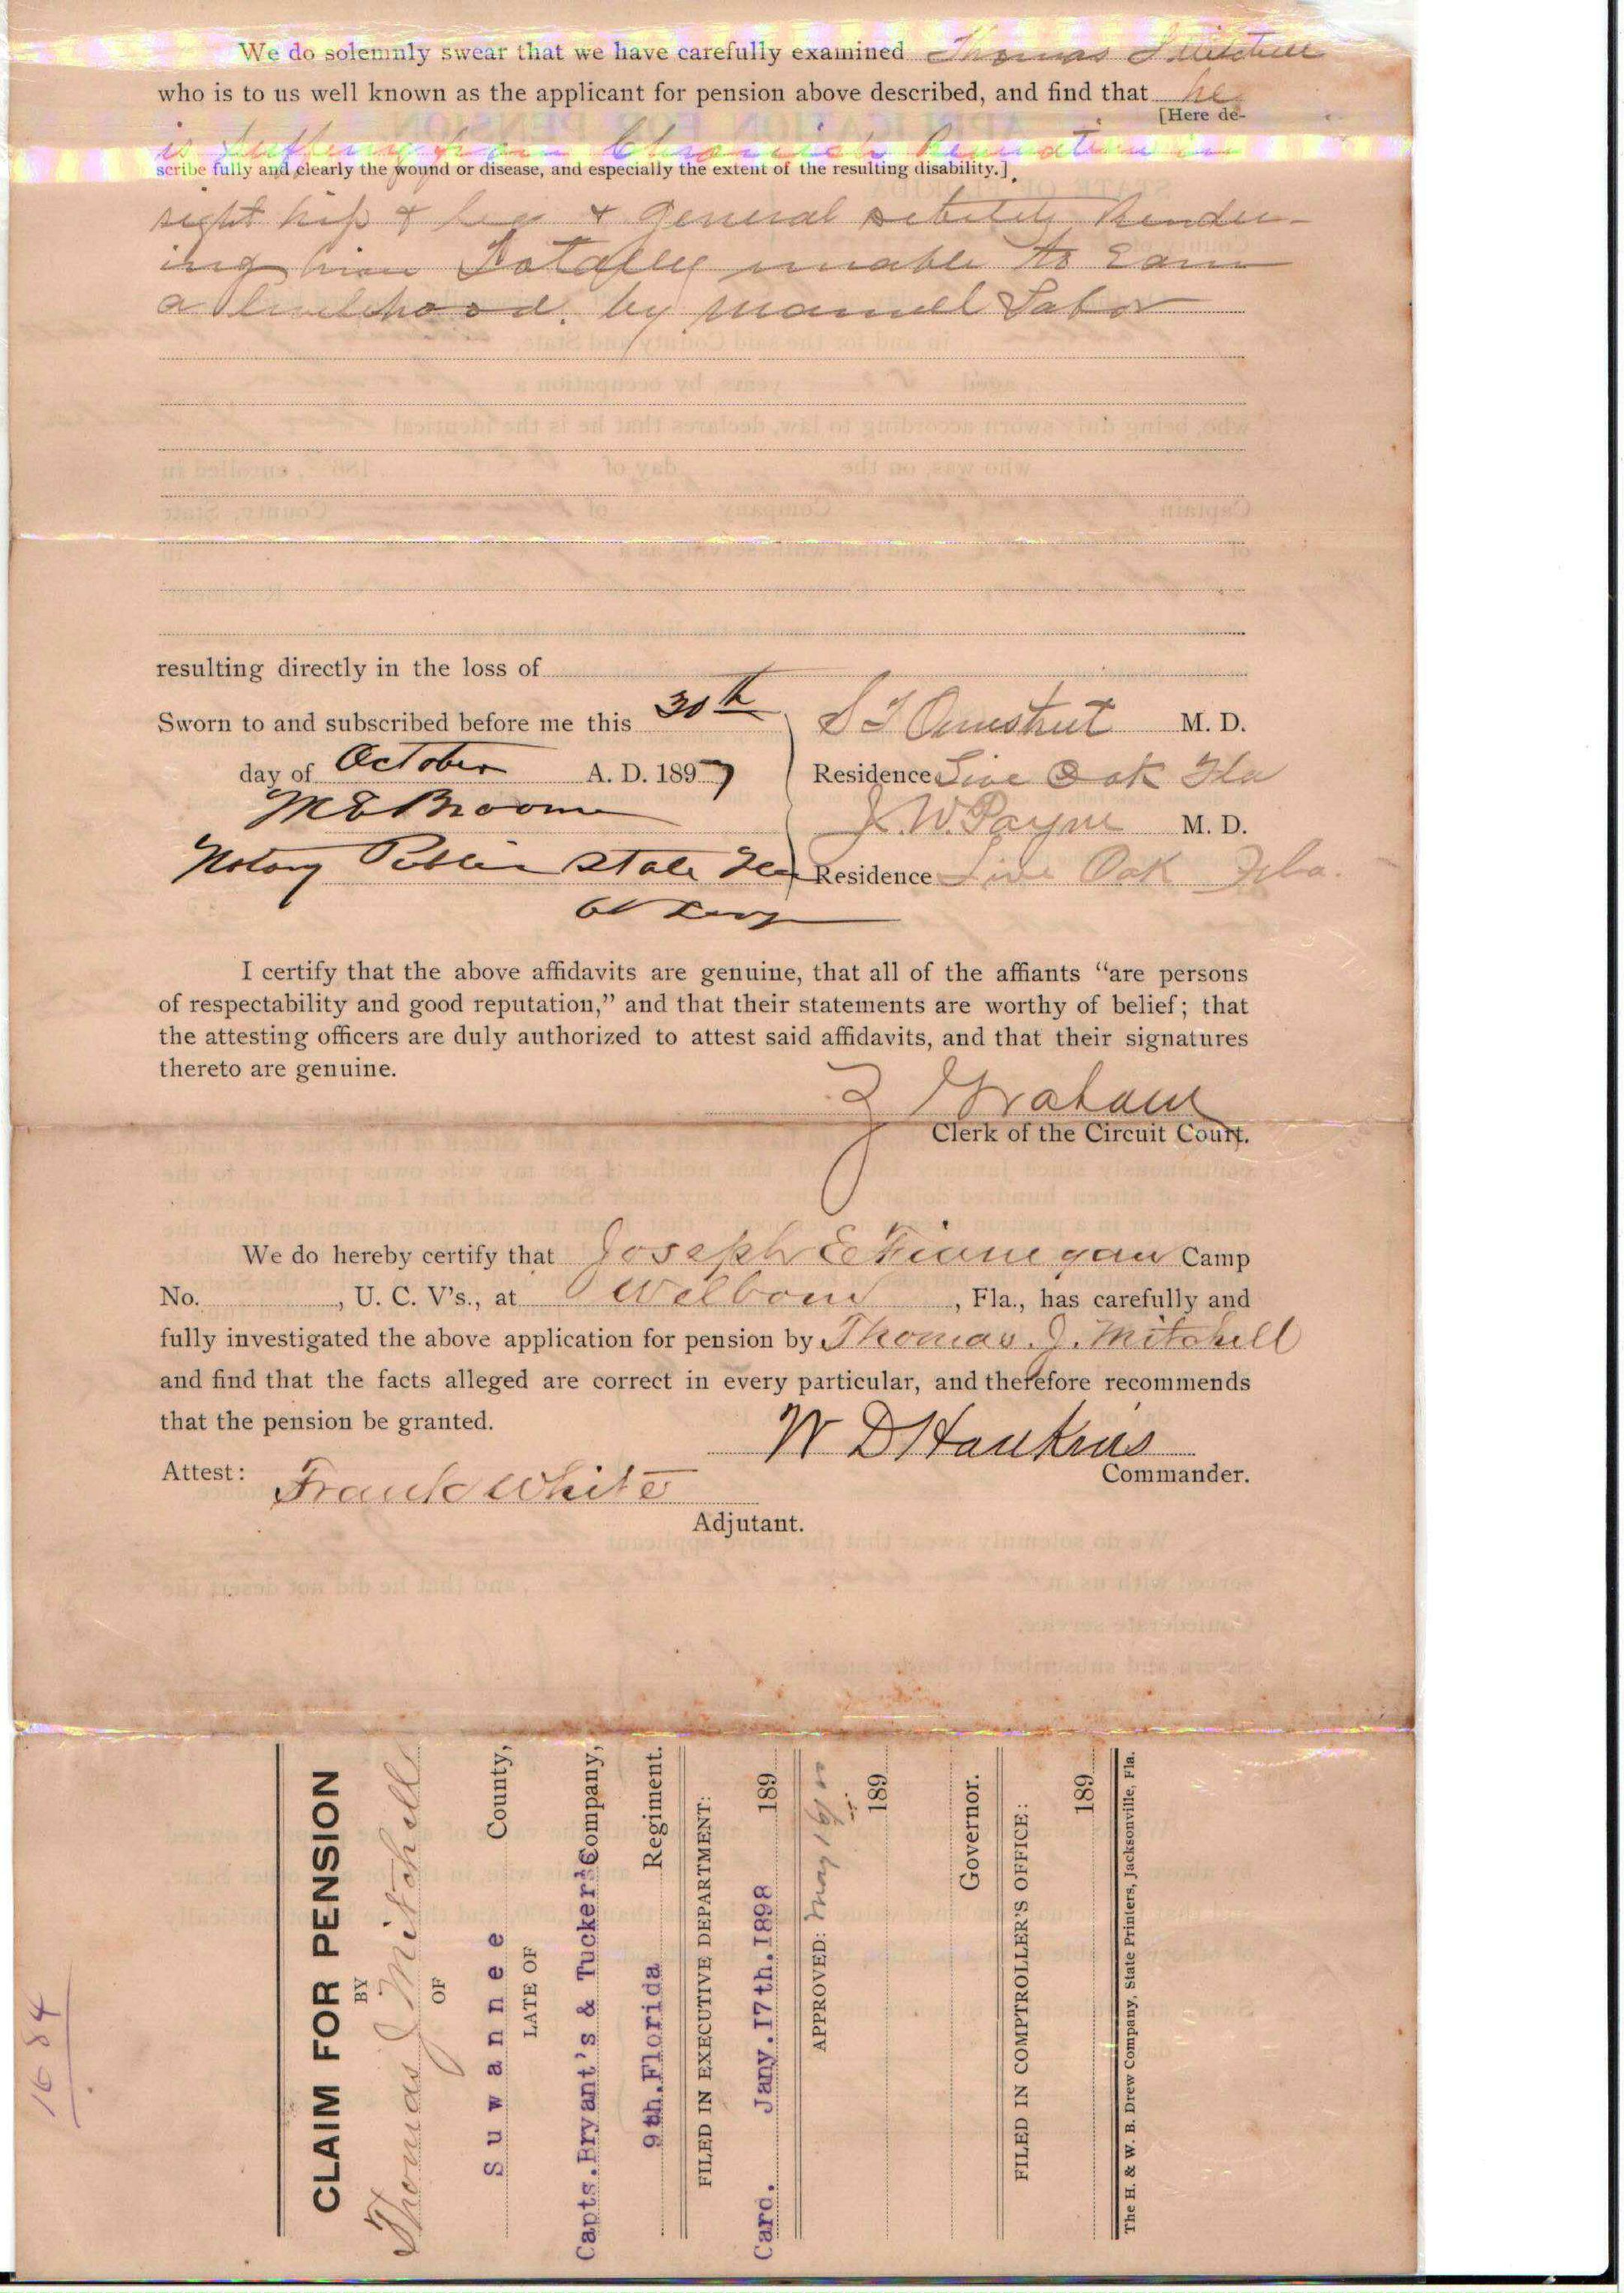 We do solemnly swear that we have carefully examined Thomas J Mitchell
who is to us well known as the applicant for pension above described, and find that he
[Here de-
is suffering from Chronich Rumatism in
scribe fully and clearly the wound or disease, and especially the extent of the resulting disability.]
right hip & leg & general debility Render-
ing him Totally unable to Earn
a livelihood. by manuel Labor
resulting directly in the loss of
Sworn to and subscribed before me this 30th
S T M. D.
day of October A. D. 1897
Residence Live Oak Fla
M E Broome
J. W. Payne M. D.
Notary Public State Fla
Residence Live Oak Fla.
at Large
I certify that the above affidavits are genuine, that all of the affiants “are persons
of respectability and good reputation,” and that their statements are worthy of belief; that
the attesting officers are duly authorized to attest said affidavits, and that their signatures
thereto are genuine.
Graham
Clerk of the Circuit Court.
We do hereby certify that Joseph E Finnegan Camp
No. , U. C. V's., at Welborn , Fla., has carefully and
fully investigated the above application for pension by Thomas. J. Mitchell
and find that the facts alleged are correct in every particular, and therefore recommends
that the pension be granted.
W D Hankins
Commander.
Attest: Frank White
Adjutant.
1684
CLAIM FOR PENSION
BY
Thomas J Mitchell
OF
Suwannee County,
LATE OF
Capts. Bryant's & Tucker's Company,
9th. Florida Regiment.
FILED IN EXECUTIVE DEPARTMENT:
Card. Jany. 17th. 1898 189
APPROVED: May
189
Governor.
FILED IN COMPTROLLER'S OFFICE:
189
The H. & W. B. Drew Company, State Printers, Jacksonville, Fla.